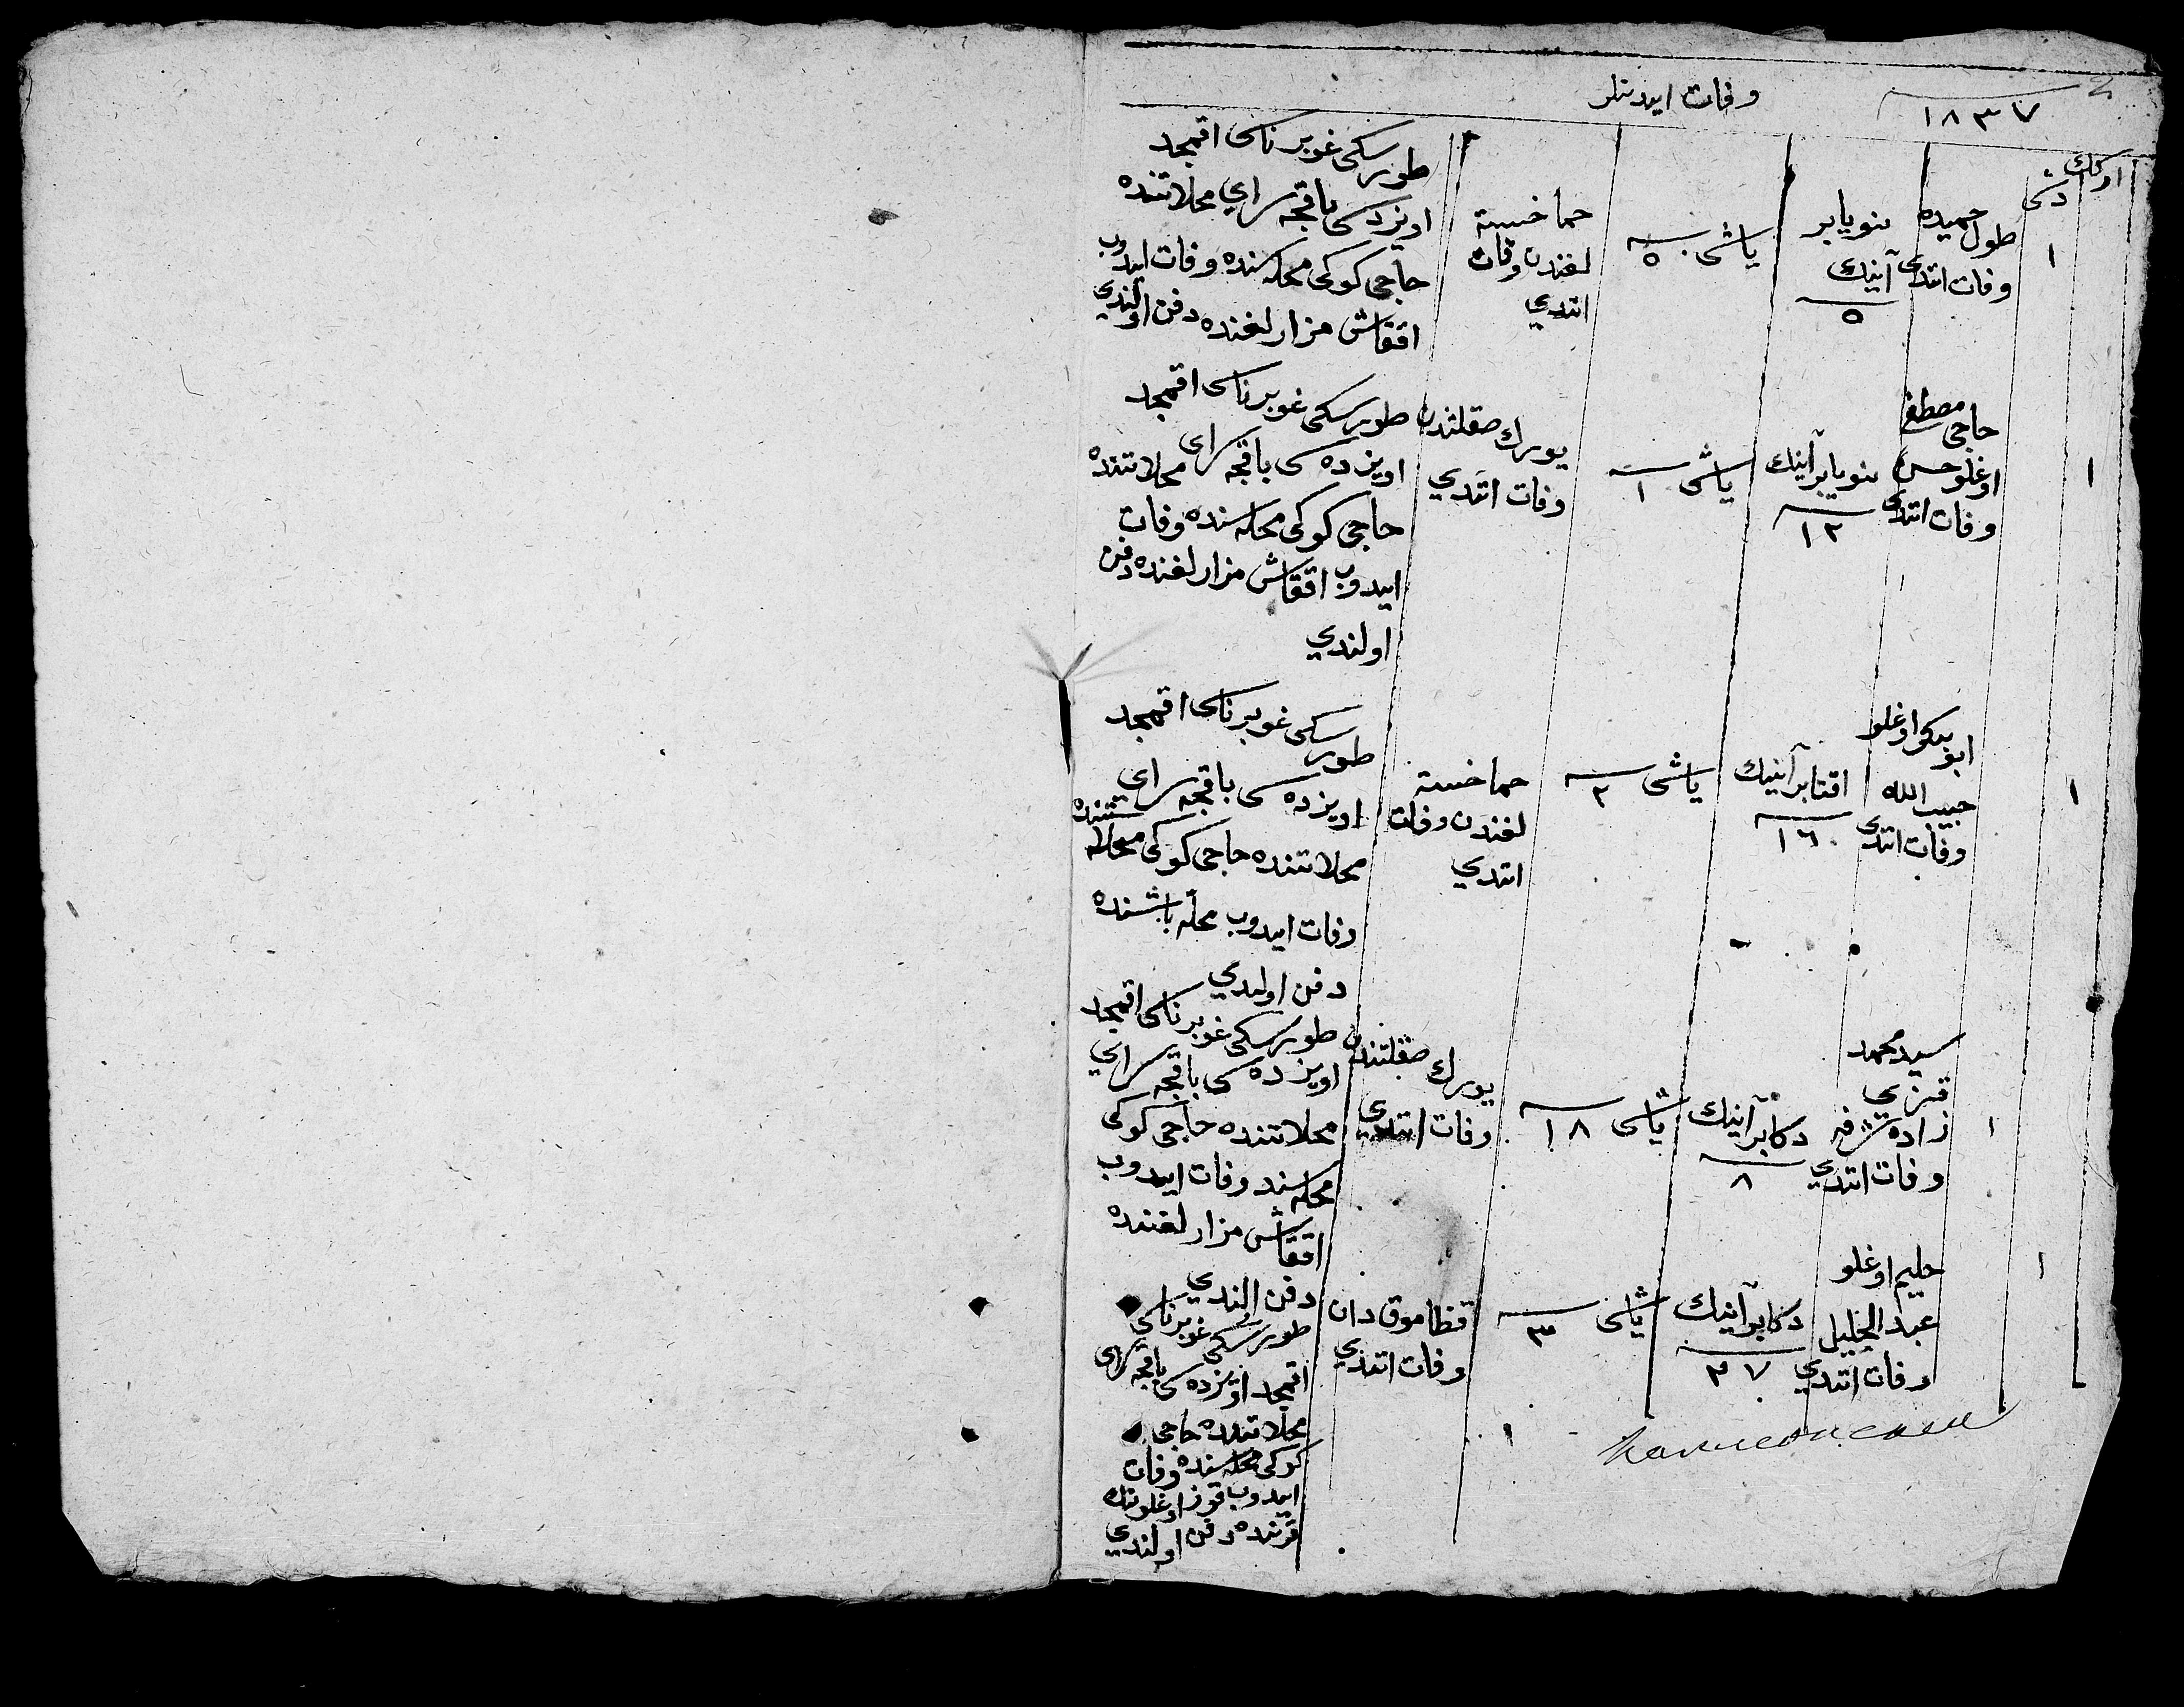 ١٨٣٧
وفات ايدنلر
اركك
دشى
١
طول حميده
وفات اتدى
نويابر
آينك
٥
ياشى
حما خسته
لغندن وفات
اتدي
طورسكى غوبرناسى اقمجد
اويزدسى باقچه سراي محلاتنده
حاجى كوكى محله سنده وفات ايدوب
اققاش مزار لغنده دفن اولندي
١
حاجى مصطفى
اوغلو حسن
وفات اتدى
نويابر آينك
١٢
ياشى
١
يورك صقلتندن
وفات اتدي
طورسكى غوبرناسى اقمجد
اويزده سى باقچه سراى محلاتنده
حاجى كوكى محله سنده وفات
ايدوب اققاش مزار لغنده دفن
اولندي
١
ابو بكر اوغلو
حبيب الله
وفات اتدى
اقتابر آينك
١٦
ياشى
٢
حما خسته
لغندن وفات
اتدي
طورسكى غوبرناسى اقمجد
اويزده سى باقچه سراي
محلاتنده حاجى كوكى محله سنده
وفات ايدوب محله باشنده
دفن اولندي
١
سيد محمد
قزى
زاده شرفه
وفات اتدي
دكابر آينك
٨
ياشى
١٨
يورك صقلتندن
وفات اتدي
طورسكى غوبرناسى اقمجد
اويزده سى باقچه سراي
محلاتنده حاجى كوكى
محله سند وفات ايدوب
اققاش مزار لغنده
دفن الندي
١
حليم اوغلو
عبد الجليل
وفات اتدي
دكابر آينك
٢٧
ياشى
٣
قظاموق دان
وفات اتدي
طورسكى غوبرناسى
اقمجد اويزده سى باقچه سراى
محلاتنده حاجى
كوكى محله سنده وفات
ايدوب قوز اوغلونك
قرنده دفن اولندي